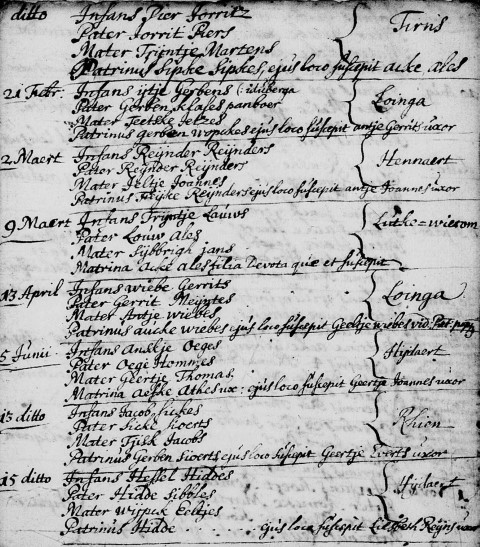 ditto Infans Pier Jorritz
Pater Jorrit Piers Tirns
Mater Trijntje Martens
Patrinus Sipke Sipkes, ejus loco suscepit acke ales
21 Infans ijtje Gerbens
Pater Gerben Klases panboer Loinga
Mater Teetske Jetzes
Patrinus Gerben wopckes ejus loco suscepit antje Gerrits uxor
2 Maert Infans Reijnder Reijnders
Pater Reijnder Reijnders Hennaert
Mater Jeltje Joannes
Patrinus Reijnders ejus loco suscepit antje Joannes uxor
9 Maert Infans Trijntje Louws
Pater Louw Ales Lutke=wierom
Mater Sijbbrigh jans
Matrina Acke Ales filia Devota quæ et suscepit
13 April Infans wiebe Gerrits
Pater Gerrit Meijntes Loinga
Mater Antje wiebes
Patrinus aucke wiebes ejus loco suscepit Geeltje wiebes vid:
5 Junii Infans Oeges
Pater Oege Hommes Hijdaert
Mater Geertje Thomas
Matrina Aefke Athes ux: ejus loco suscepit Geertje Joannes uxor
13 ditto Infans Jacob Sickes
Pater Sicke Sioerts Rhien
Mater Tjisk Jacobs
Patrinus Gerben Sioerts ejus loco suscepit Geertje Everts uxor
15 ditto Infans Hessel Hiddes
Pater Hidde Sibbles Hijdaert
Mater Wijpck Eeltjes
Patrinus Hidde ejus loco suscepit Lisbeth Reijns uxor